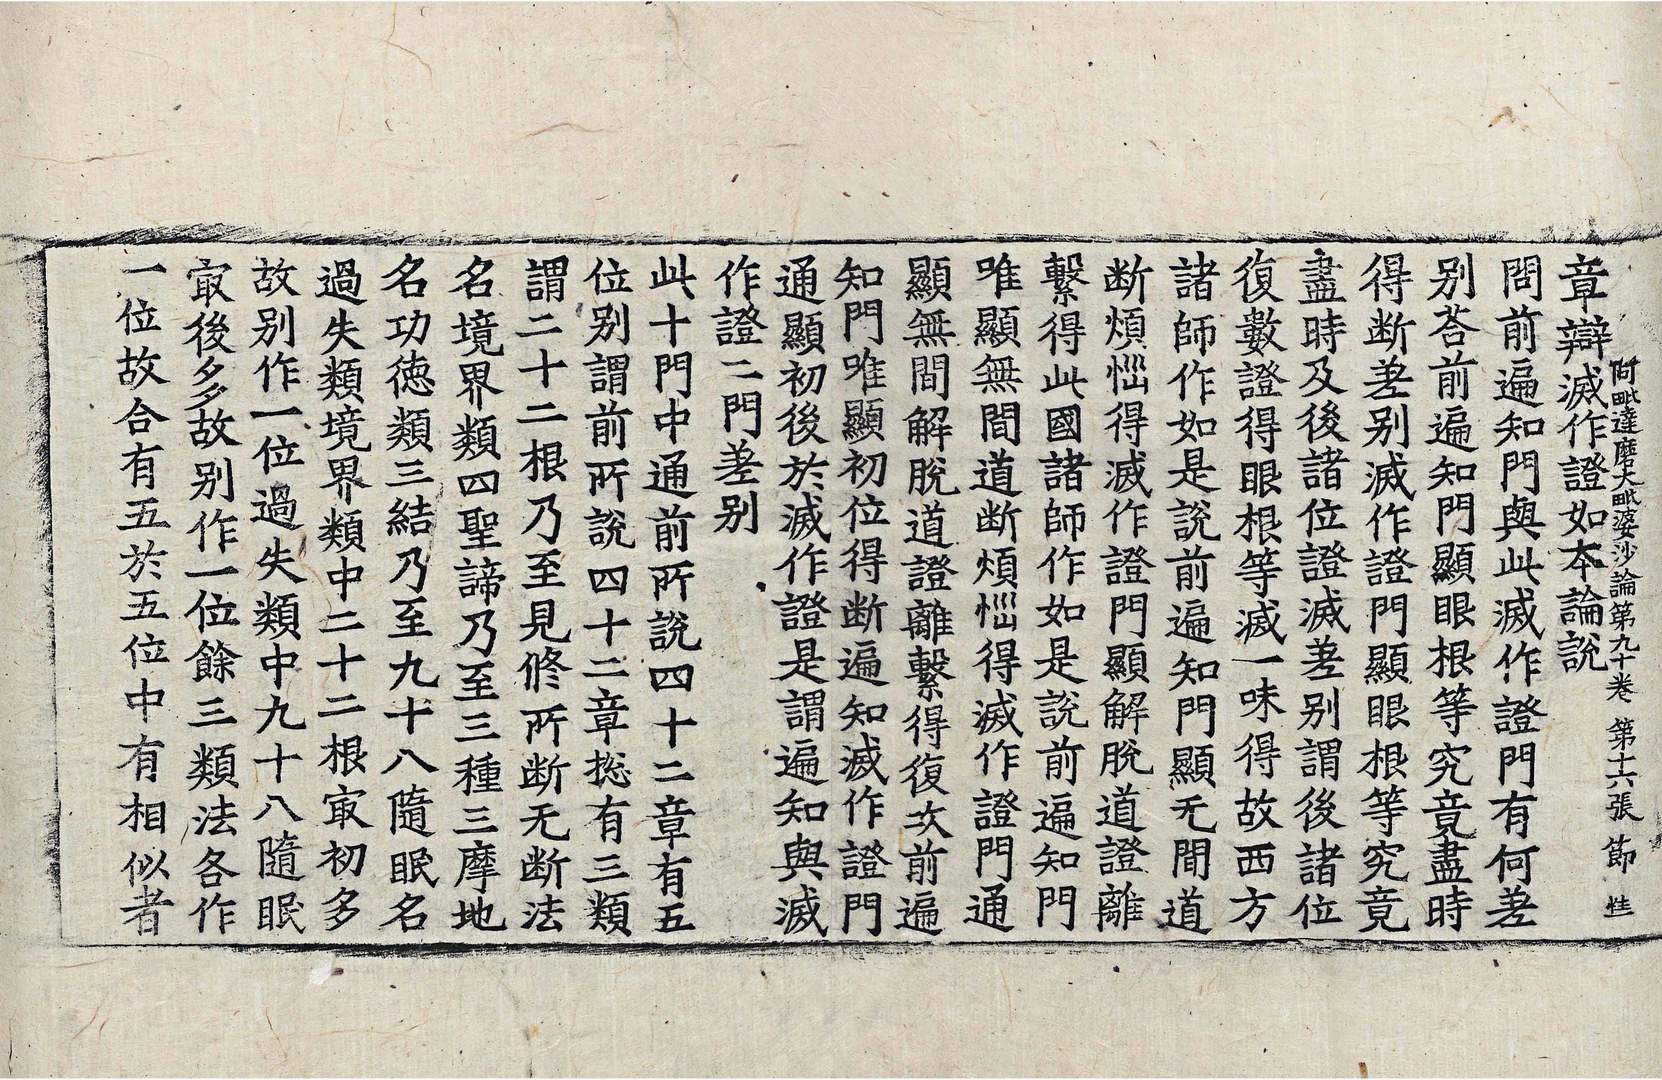 阿毗達磨大毗婆沙論第九十卷 第十六張 節
章辯滅作證如本論說
問前遍知門與此滅作證門有何差
別荅前遍知門顯眼根等究竟盡時
得斷差別滅作證門顯眼根等究竟
盡時及後諸位證滅差別謂後諸位
復數證得眼根等滅一味得故西方
諸師作如是說前遍知門顯无間道
断煩惱得滅作證門顯解脫道證離
繫得此國諸師作如是說前遍知門
唯顯無間道断煩惱得滅作證門通
顯無間解脫道證離繫得復次前遍
知門唯顯初位得断遍知滅作證門
通顯初後於滅作證是謂遍知與滅
作證二門差別
此十門中通前所說四十二章有五
位別謂前所說四十二章捴有三類
謂二十二根乃至見修所断无断法
名境界類四聖諦乃至三種三摩地
名功德類三結乃至九十八隨眠名
過失類境界類中二十二根㝡初多
故別作一位過失類中九十八隨眠
㝡後多故別作一位餘三類法各作
一位故合有五於五位中有相似者